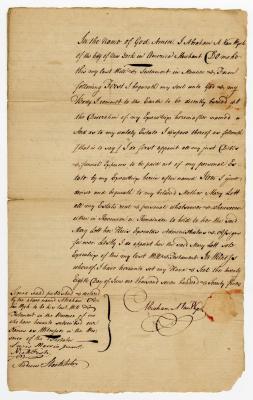 In the Name of God Amen I Abraham A Van Wyck
of the City of New York in America Merchant Do make
this my last Will & Testament in Manner & Form
following First I bequeath my soul unto God & my
Body I commit to the Earth to be decently buried at
the Discretion of my Executrix hereinafter named &
And as to my worldly Estate I dispose thereof as follows
(that is to say) I do first appoint all my just Debts
& funeral Expences to be paid out of my personal Es-
tate by my Executrix herein after named Item I give
devise and bequeath to my beloved Mother Mary Lott
all my Estate real & personal whatsoever & wheresoever
either in Possession or Remainder to hold to her the said
Mary Lott her Heirs Executors Administrators & Assigns
for ever Lastly I do appoint her the said Mary Lott Sole
Executrix of this my last Will & Testament In Witness
whereof I have hereunto set my Hand & Seal the twenty
Eighth Day of June one thousand seven hundred &
Abraham A Van Wyck
Signed Sealed published & declared
by the above named Abraham
Van Wyck to be his last Will &
Testament in the Presence of us
who have hereunto subscribed our
Names as Witnesses in the Pre-
sence of the Testator
Andrew